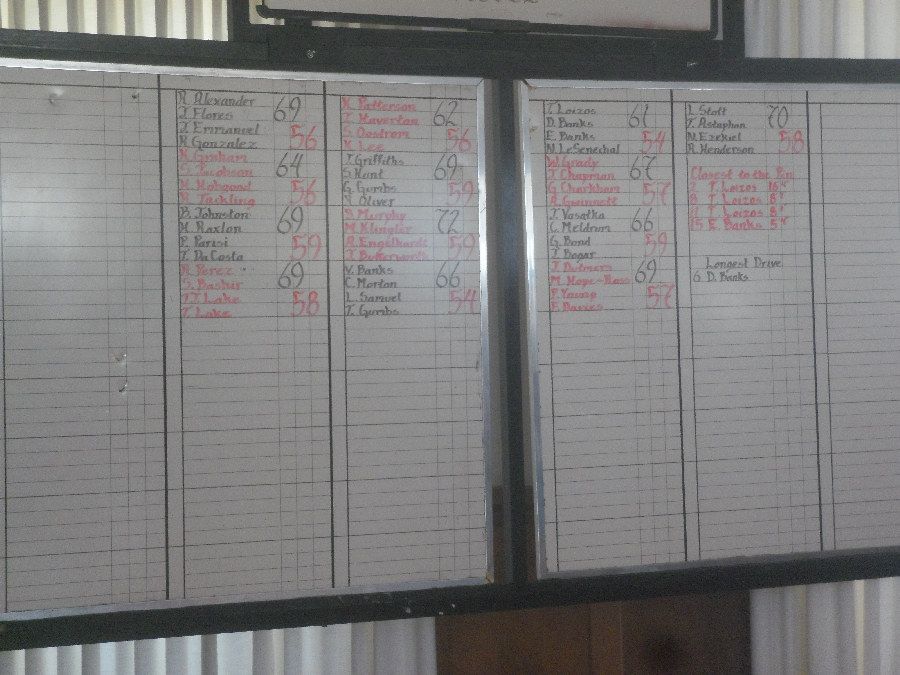 R. Alexander 69
J. Flores
J. Emmanuel 56
R. Gonzalez
M. Graham 64
S. Jacobson
M. Hobgood 56
R. Tackling
B. Johnston 69
H. Raxlon
P. Parisi 59
T. DaCosta
R. Perez 69
S. Bashir
J.J. Lake 58
T. Lake
K. Patterson 62
T. Haverton
S. Oestrem 56
K. Lee
J. Griffiths 69
S. Hunt
G. Gumbs 59
Oliver
S. Murphy 72
M. Klingler
A. Engelhardt 59
J. Butterworth
V. Banks 66
C. Morton
L. Samuel 54
T. Gumbs
T. Loizos 61
D. Banks
E. Banks 54
N. LeSenechal
W. Grady 67
J. Chapman
G. Charkham 57
A. Gwinnett
J. Vasatka 66
C. Meldrum
G. Bond 59
J. Bogar
J. Outmers 69
M. Hope-Ross
P. Young 57
F. Davies
L. Stott 70
T. Astaphan
N. Ezekiel 58
R. Henderson
Closest to the Pin
T. Loizos
8 T. Loizos
T. Loizos
15 E. Banks
Longest Drive
6 D. Banks